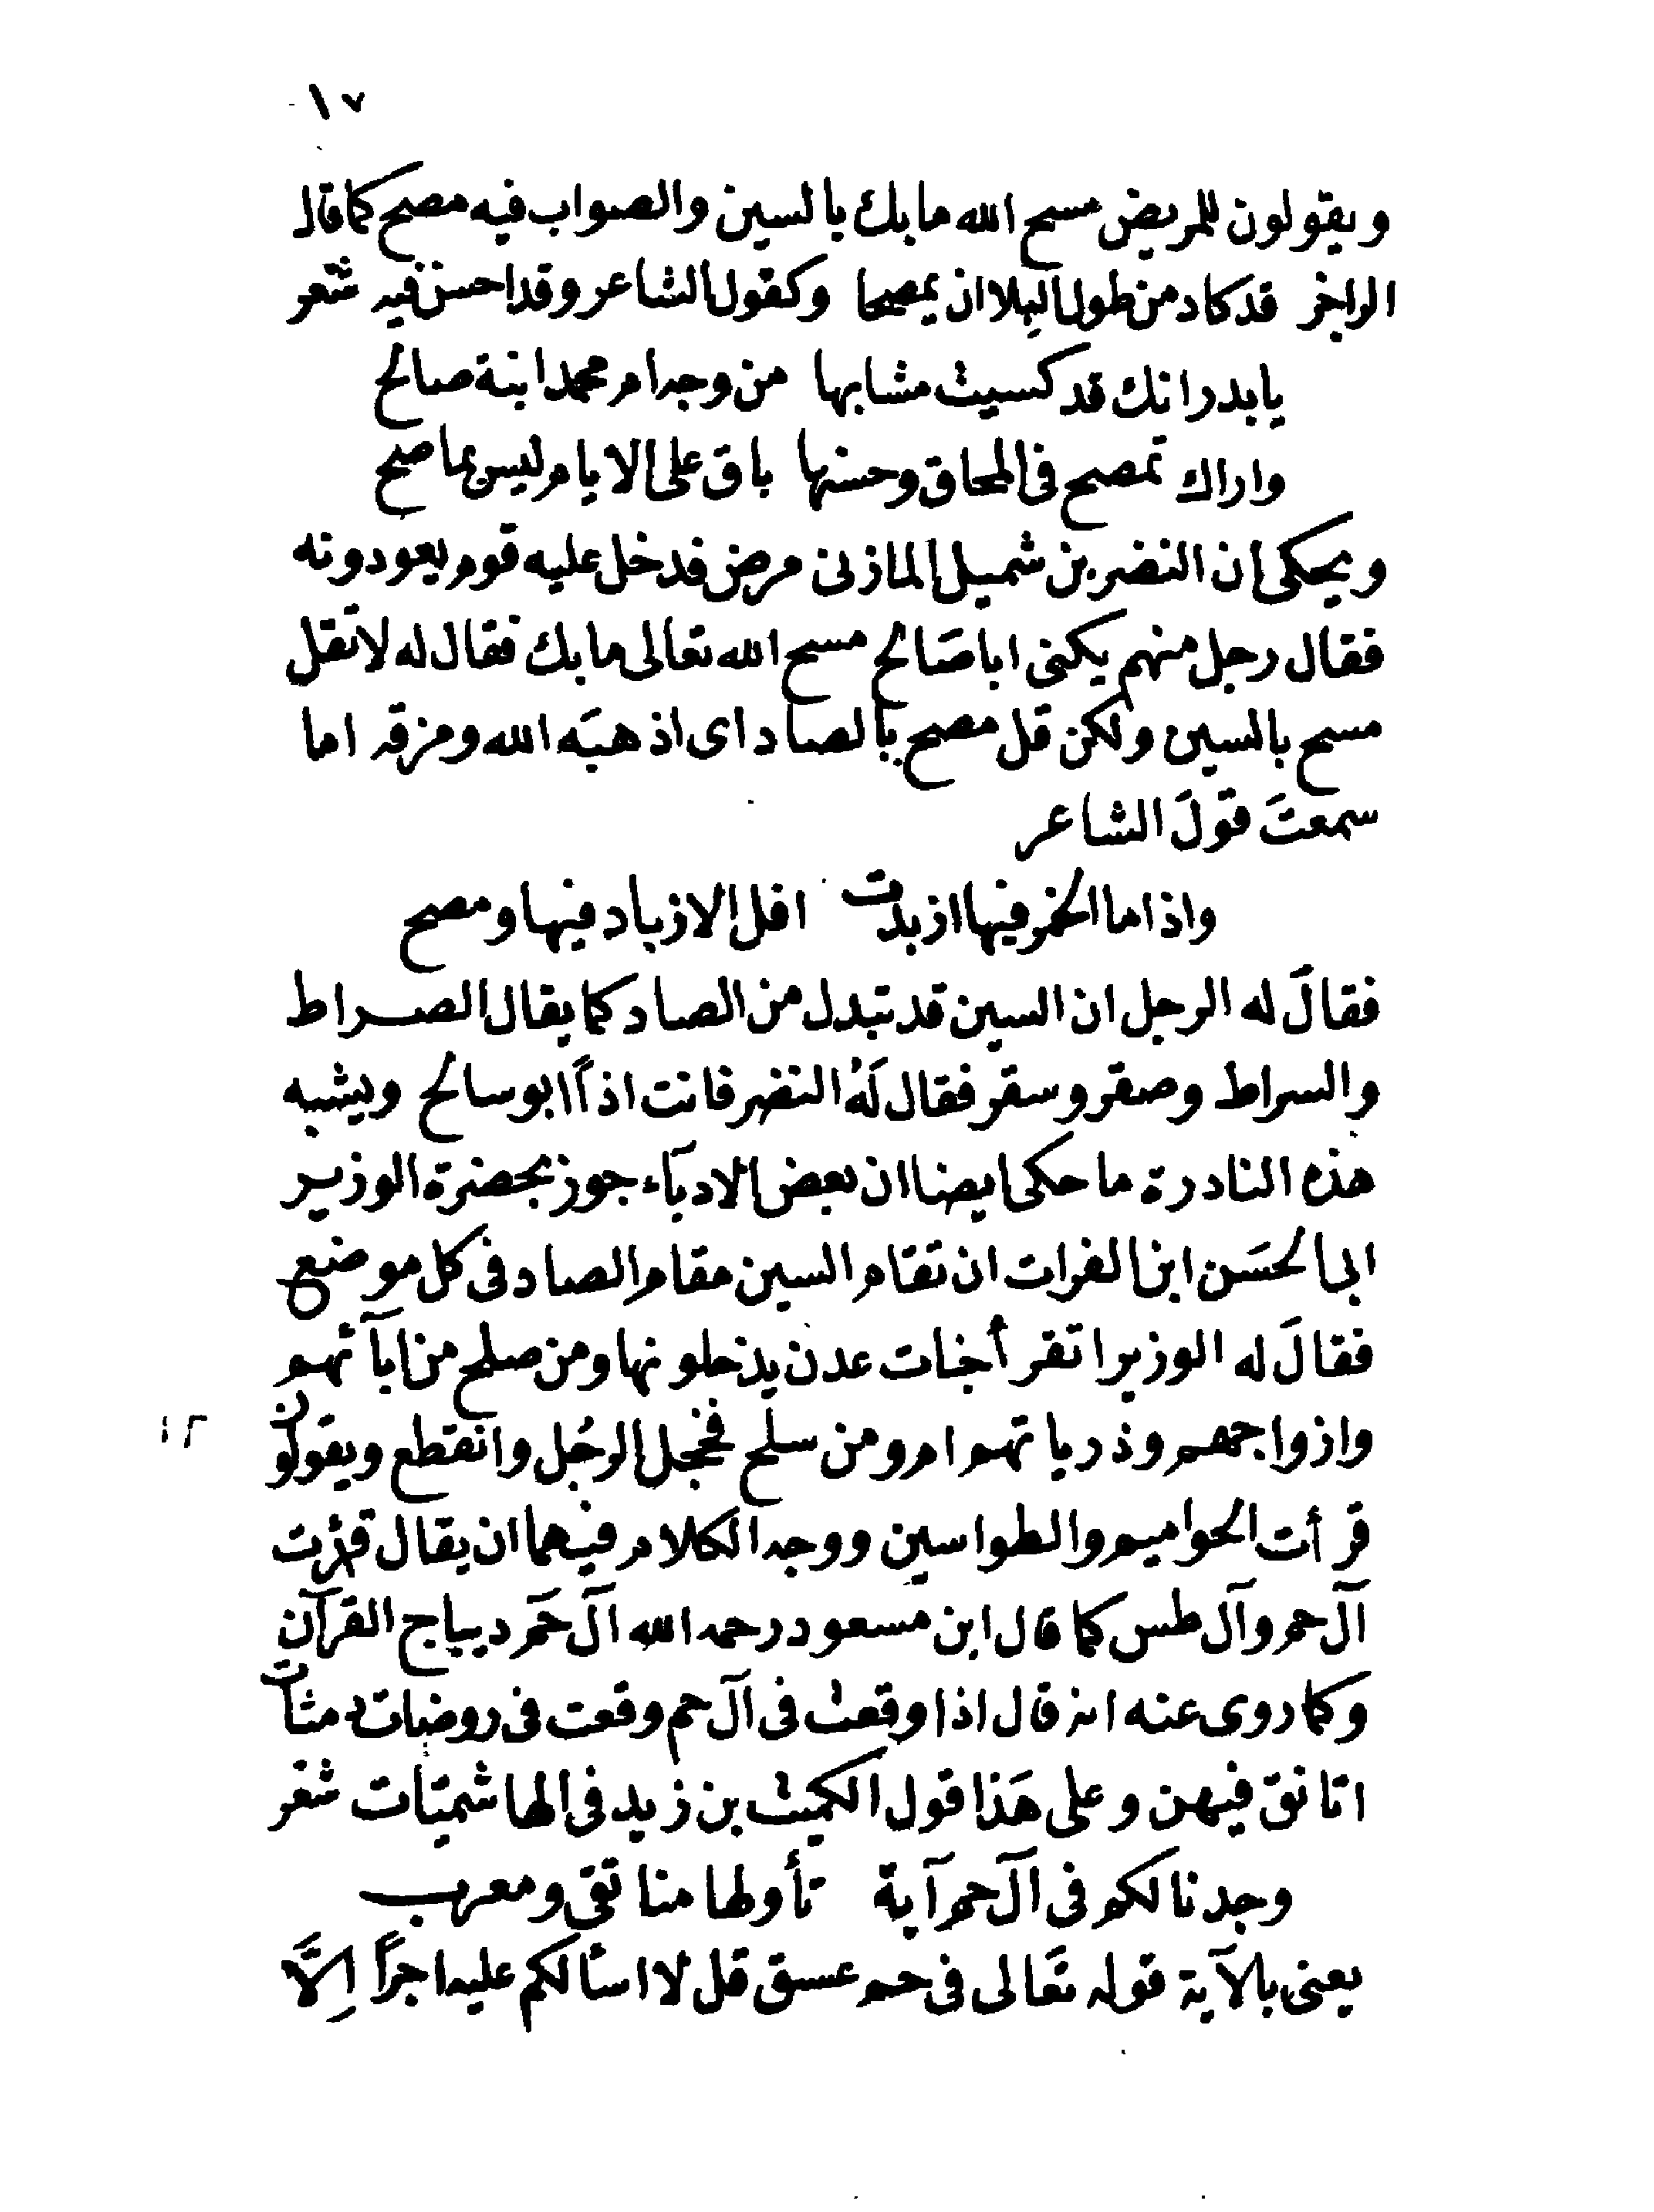 ١٧
ويقولون للمريض مسح الله ما بك بالسين والصواب فيه مصح كما قال
الراجز قد كاد من طول البلا ان يمصحا وكقول الشاعر وقد احسن فيه شعر
يا بدر انك قد كسيت مشابها من وجه ام محمد ابنة صالح
واراك تمصح فى المحاق وحسنها باق على الايام ليس بماصح
ويحكى ان النضر بن شميل المازنى مرض فدخل عليه قوم يعودونه
فقال رجل منهم يكنى ابا صَالح مسح الله تعالى ما بك فقال له لا تقل
مسح بالسين ولكن قل مصح بالصاد اى اذهبَه الله ومزقه اما
سمعتَ قولَ الشاعر
واذا ما الخمر فيها ازبدت افل الازباد فيها ومصح
فقالَ له الرجل ان السين قد تبدل من الصاد كما يقال الصراط
والسراط وصقر وسقر فقال لَهُ النضر فانت اذاً ابو سالح ويشبه
هذه النادرة ما حكى ايضا ان بعض الادبآء جوز بحضرة الوزير
ابى الحسَن ابن الفرات ان تقام السين مقام الصاد فى كل موضع
فقالَ له الوزير اتقرأ جنات عدن يدخلونها ومن صلح من ابآئهم
وازواجهم وذرياتهم ام ومن سلح فخجل الرجُل وانقطع ويقولون
١٢
قرأت الحواميم والطواسين ووجه الكلام فيهما ان يقال قرأت
آل حم وآل طس كما قال ابن مسعود رحمه الله آل حَم ديباج القرآن
وكما روى عنه انه قال اذا وقعت فى آل حم وقعت فى روضات دمثات
اتانق فيهن وعلى هَذا قول الكميت بن زيد فى الهاشميّات شعر
وجدنا لكم فى آل حم آية تأولها منا تقى ومعرب
يعنى بالآية قوله تعَالى فى حم عسق قل لا اسألكم عليه اجراً اِلَّا